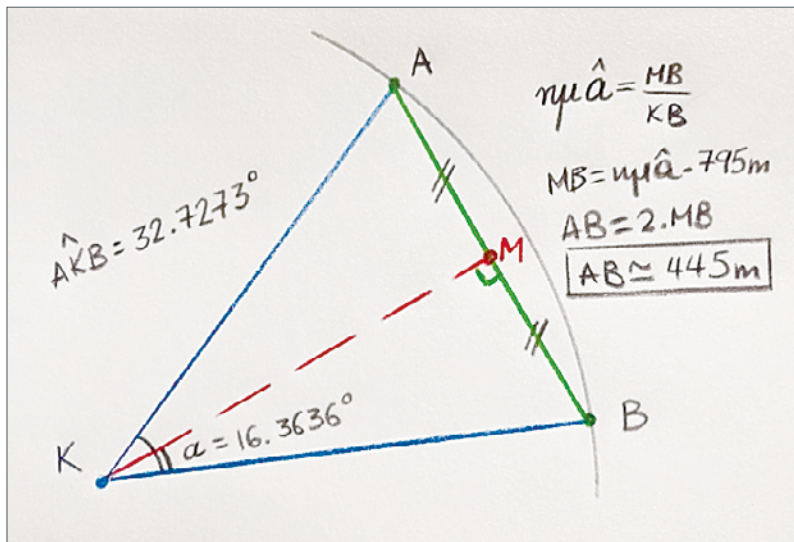 A
ημ â = MB/KB
MB = ημ â - 795m
AB = 2.MB
AB ≃ 445m
AK̂B = 32.7273°
M
a = 16.3636°
K
B